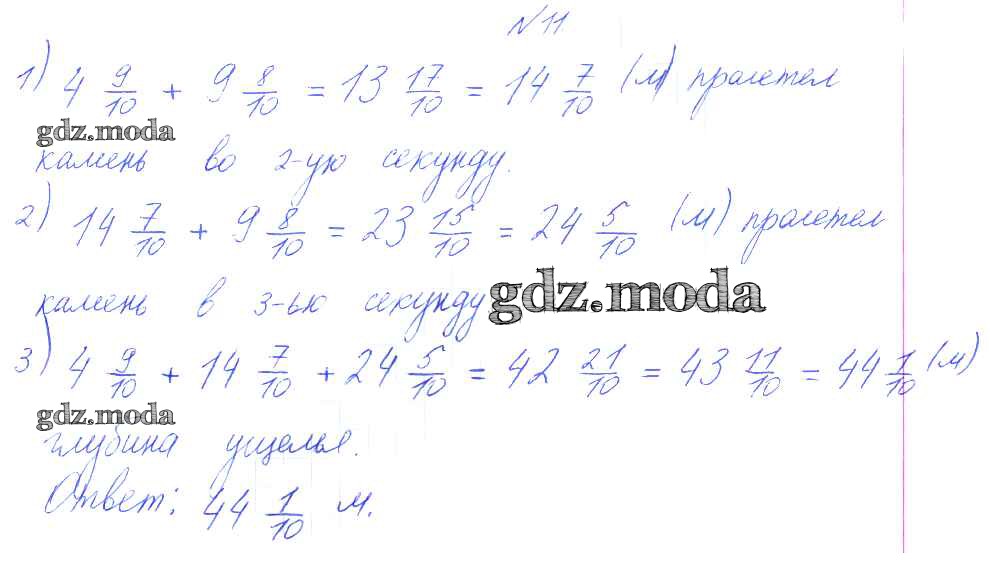 №11.
1) 4 9/10 + 9 8/10 = 13 17/10 = 14 7/10 (м) пролетел
gdz.moda
камень во 2-ую секунду.
2) 14 7/10 + 9 8/10 = 23 15/10 = 24 5/10 (м) пролетел
камень в 3-ью секунду gdz.moda
3) 4 9/10 + 14 7/10 + 24 5/10 = 42 21/10 = 43 11/10 = 44 1/10 (м)
gdz.moda
глубина ущелья.
Ответ: 44 1/10 м.